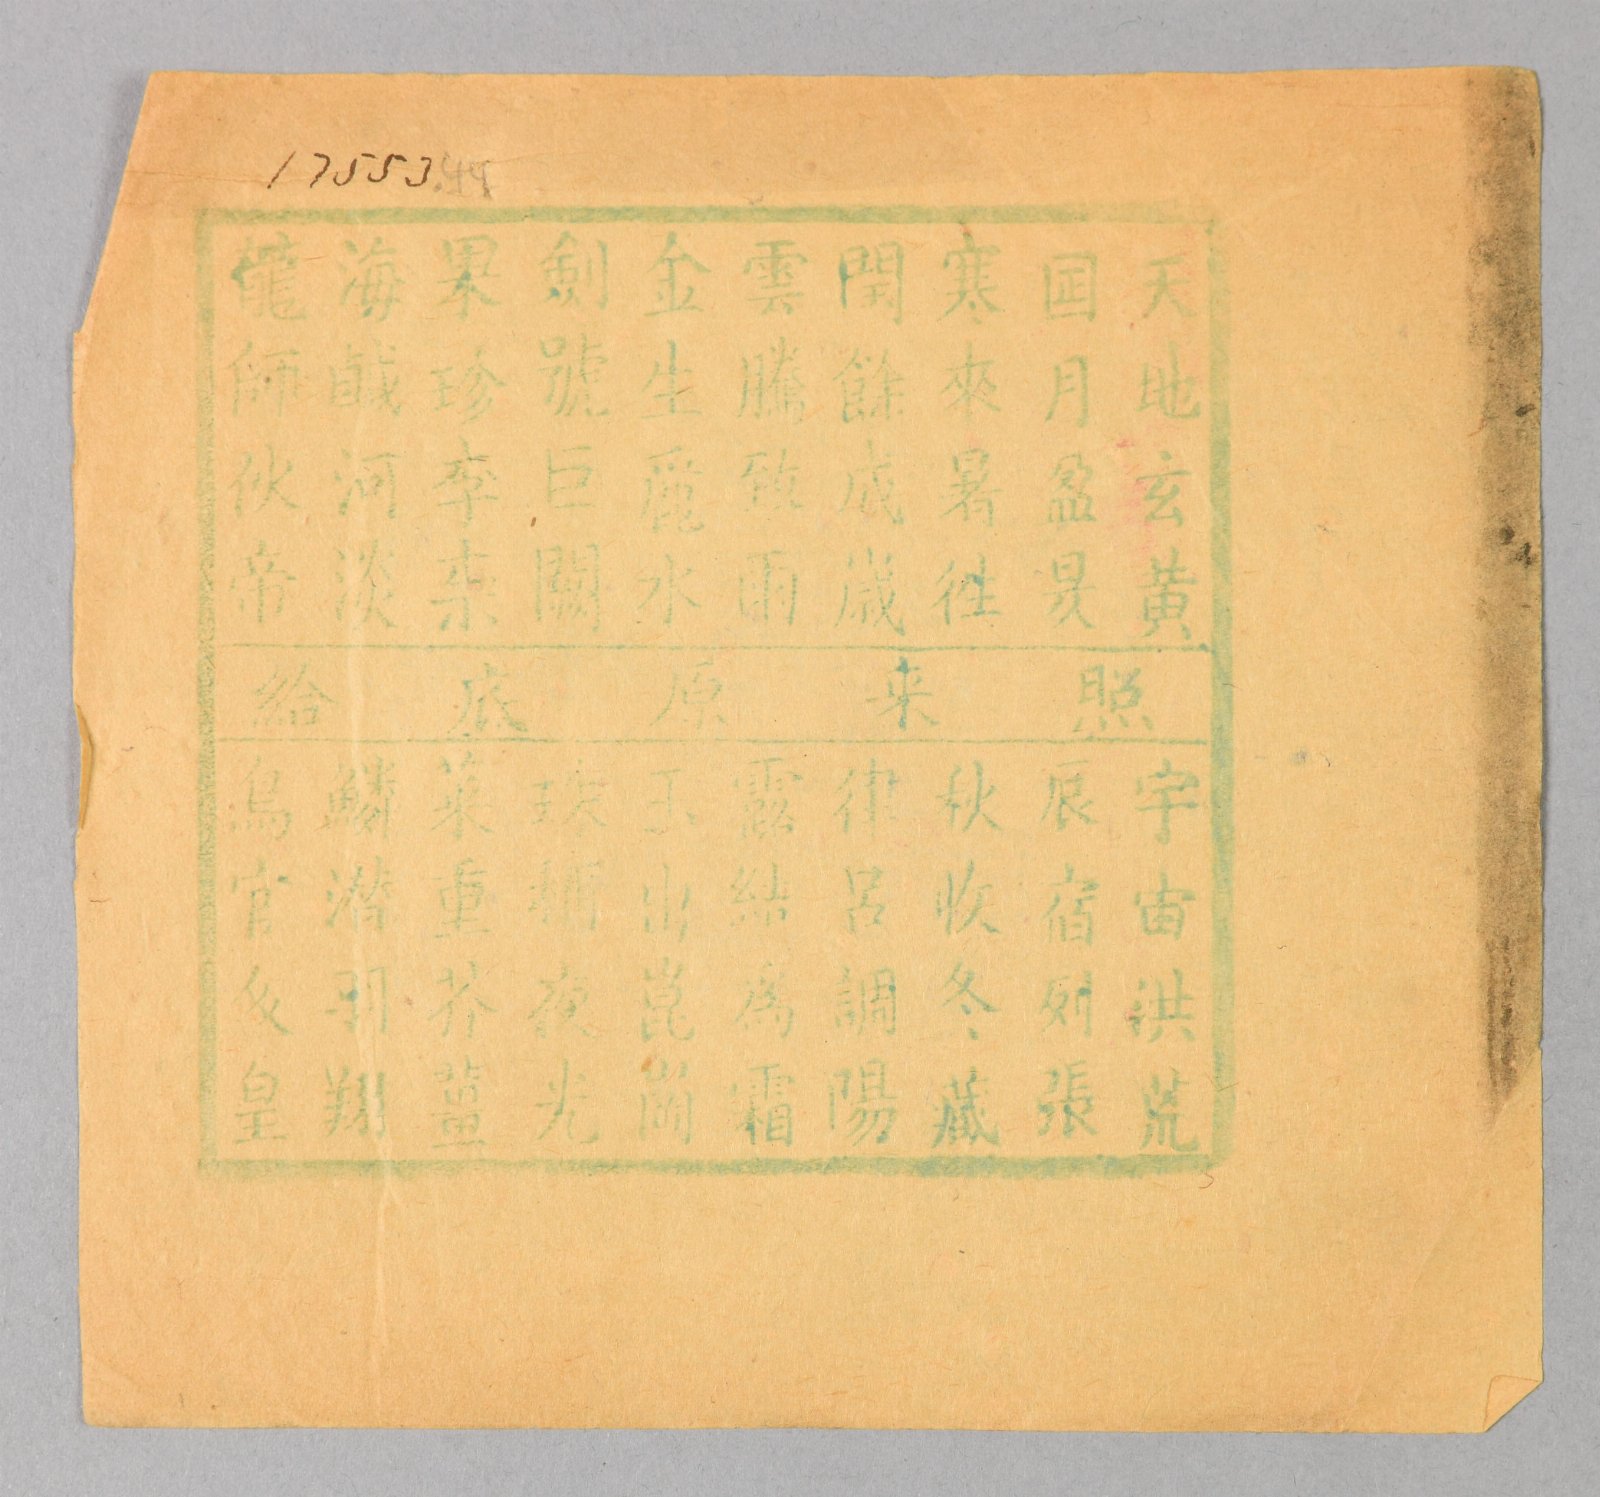 17553.44
天地玄黃
囸月盈昃
寒來暑徃
閏餘成歲
雲騰致雨
金生麗水
劍號巨闕
果珍李柰
海鹹河淡
龍師伙帝
照来原底給
宇宙洪荒
辰宿列張
秋收冬藏
律呂調陽
露結為霜
玉出崑崗
珠稱夜光
菜重芥薑
鱗潛羽翔
鳥官人皇